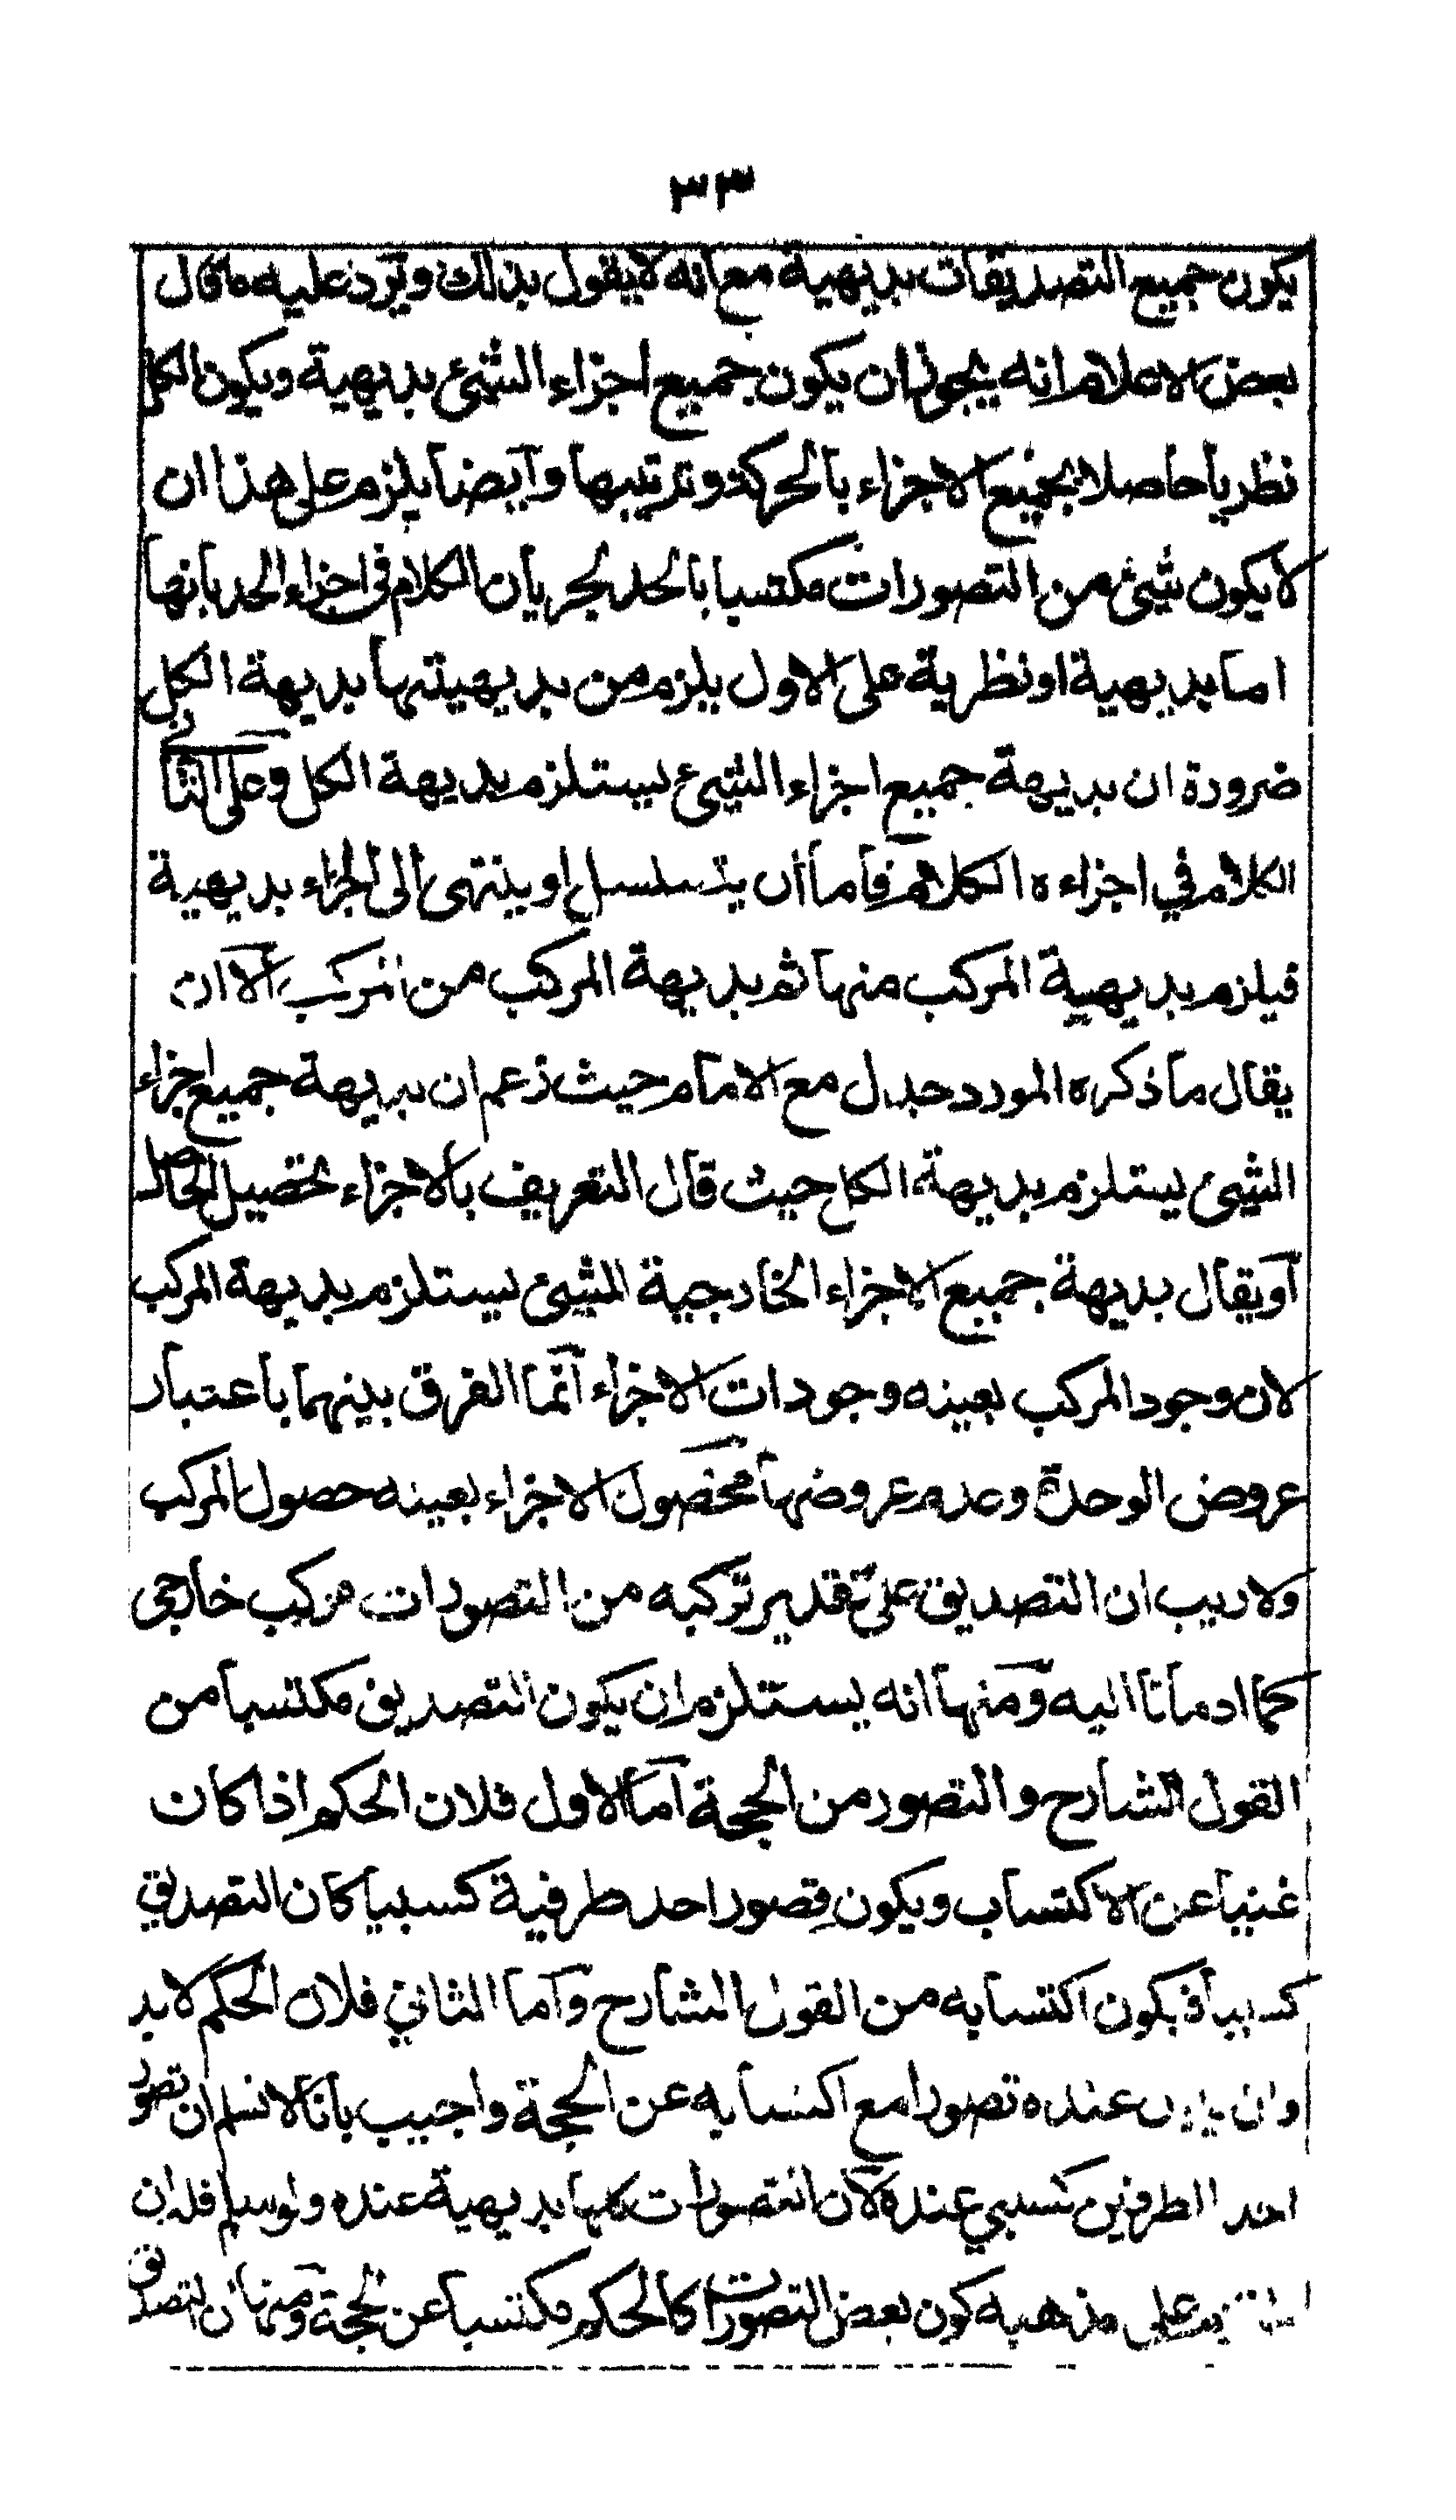 ٣٣
يكون جميع التصديقات بديهية مع انه لا يقول بذالك ويرد عليه ما قال
بعض الاعلام انه يجوز ان يكون جميع اجزاء الشئ بديهية ويكون الكل
نظريا حاصلا بجميع الاجزاء بالحركة وترتيبها وايضا يلزم على هذا ان
لا يكون شئ من التصورات مكتسبا بالحد لجريان الكلام فى اجزاء الحد بانها
اما بديهية او نظرية على الاول يلزم من بديهيتها بديهة الكل
ضرورة ان بديهة جميع اجزاء الشئ يستلزم بديهة الكل وعلى الثانى
الكلام في اجزاءه الكلام فاما ان يتسلسل او ينتهى الى الجزاء بديهية
فيلزم بديهية المركب منها ثم بديهة المركب من المركب الا ان
يقال ما ذكره المورد جدل مع الامام حيث زعم ان بديهة جميع اجزاء
الشئ يستلزم بديهة الكل حيث قال التعريف بالاجزاء تحصيل الحاصل
او يقال بديهة جميع الاجزاء الخارجية للشئ يستلزم بديهة المركب
لان وجود المركب بعينه وجودات الاجزاء انما الفرق بينهما باعتبار
عروض الوحدة وعدم عروضها فحصول الاجزاء بعينه حصول المركب
ولا ريب ان التصديق على تقدير تركبه من التصورات مركب خارجى
كما ادمانا اليه ومنها انه يستلزم ان يكون التصديق مكتسبا من
القول الشارح والتصور من الحجة اما الاول فلان الحكم اذا كان
غنيا عن الاكتساب ويكون تصور احد طرفية كسبيا كان التصديق
كسبيا فيكون اكتسابه من القول الشارح واما الثاني فلان الحكم لا بد
وان يكون عنده تصورا مع اكتسابه عن الحجة واجيب بانا لا نسلم ان تصور
احد الطرفين كسبي عنده لان التصورات كلها بديهية عنده ولو سلم فله ان
على مذهبه كون بعض التصورات كالحكم مكتسبا عن الحجة ومنها ان التصديق